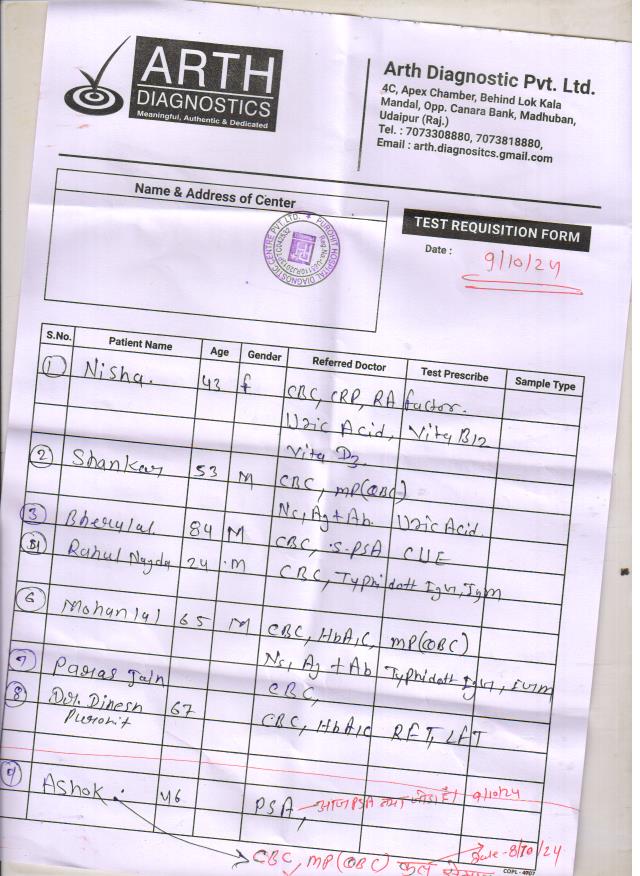 ARTH
DIAGNOSTICS
Meaningful, Authentic & Dedicated
Arth Diagnostic Pvt. Ltd.
4C, Apex Chamber, Behind Lok Kala
Mandal, Opp. Canara Bank, Madhuban,
Udaipur (Raj.)
Tel. : 7073308880, 7073818880,
Email : arth.diagnositcs.gmail.com
Name & Address of Center
PUROHIT HOSPITAL DIAGNOSTIC CENTRE PVT. LTD.
TEST REQUISITION FORM
Date : 9/10/24
S.No. Patient Name Age Gender Referred Doctor Test Prescribe Sample Type
1 Nisha. 43 f CBC, CRP, RA factor.
Uric Acid, Vita B12
Vita D3.
2 Shankar 53 M CBC, MP(QBC)
Ns, Ag + Ab. Uric Acid.
3 Bherulal 84 M CBC, S-PSA CUE
Rahul Nagda 24 M CBC, Typhidott Igm, Igm
6 Mohanlal 65 M CBC, HbA1C, MP(QBC)
Ns, Ag + Ab Typhidott
7 Paras Jain CBC,
8 Dr. Dinesh 67 CBC, HbA1c RFT, LFT
Purohit
9 Ashok 46 PSA, आज PSA जोडा है। 9/10/24
CBC, MP (QBC) कल Date-8/10/24
COPL - 4907